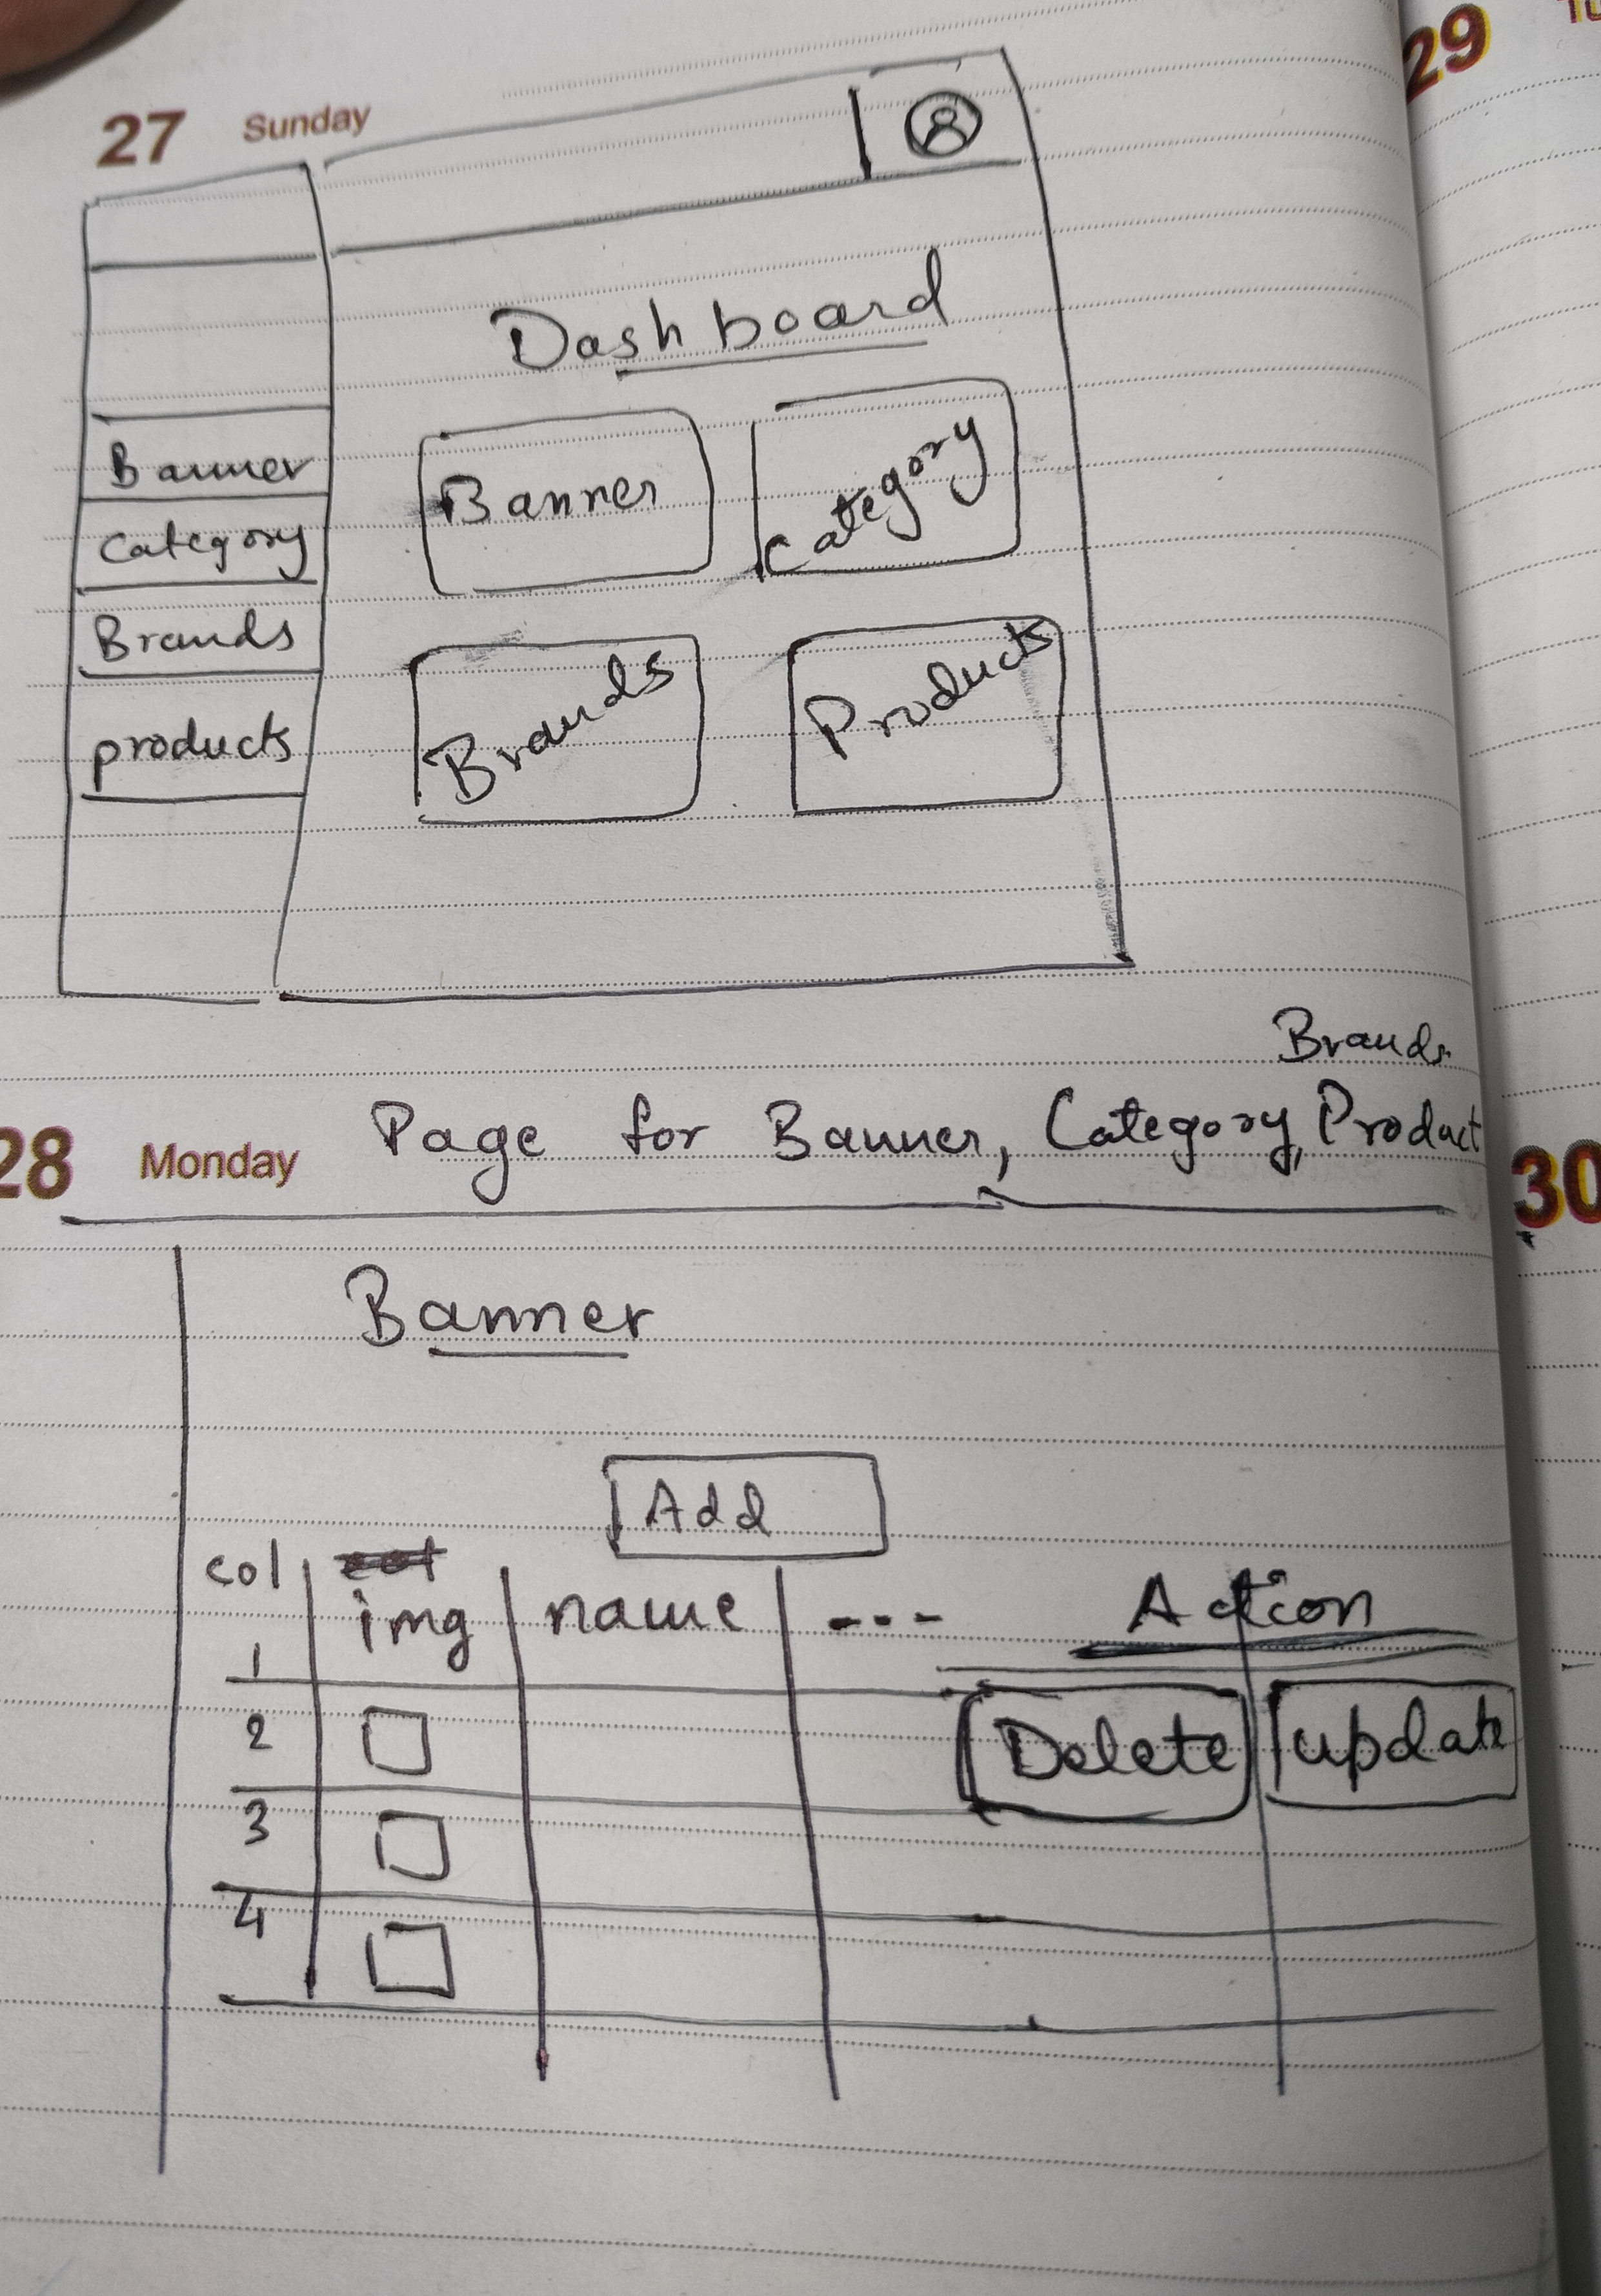 27 Sunday
29
Dashboard
Banner
Category
Brands
products
Banner
Category
Brands
Products
Brands
28 Monday
Page for Banner, Category, Product
30
Banner
Add
col
img
name
---
Action
1
2
Delete
update
3
4